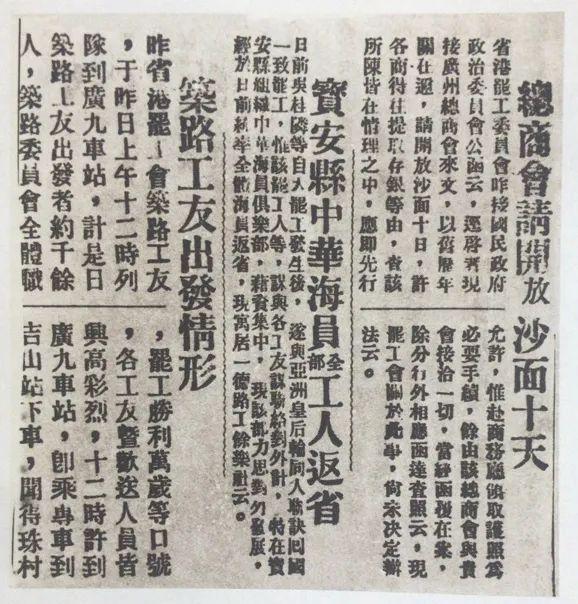 總商會請開放沙面十天
省港罷工委員會昨接國民政府
政治委員會公函云，逕啓者現
接廣州總商會來文，以舊歷年
關在邇，請開放沙面十日，許
各商得往提取存銀等由，查該
所陳皆在情理之中，應即先行
允許，惟赴商務廳領取護照爲
必要手續，餘由該總商會與貴
會接洽一切，當經函復在案，
除分行外相應函達查照云，現
罷工會關於此事，尙未决定辦
法云。
寶安縣中華海員全部工人返省
日前與杜隣等自罷工發生後，遂與亞洲皇后輪同人聯訣回國
一致罷工，惟該罷工人等，謀與各工友謀聯絡對外計，特在寶
安縣組織中華海員俱樂部，藉資集中，現該部力思對外發展，
經於日前率全體海員返省，現寓居一德路工餘樂社云。
築路工友出發情形
昨省港罷工會築路工友
，于昨日上午十二時列
隊到廣九車站，計是日
築路工友出發者約千餘
人，築路委員會全體職
，罷工勝利萬歲等口號
，各工友曁歡送人員皆
興高彩烈，十二時許到
廣九車站，卽乘專車到
吉山站下車，聞得珠村